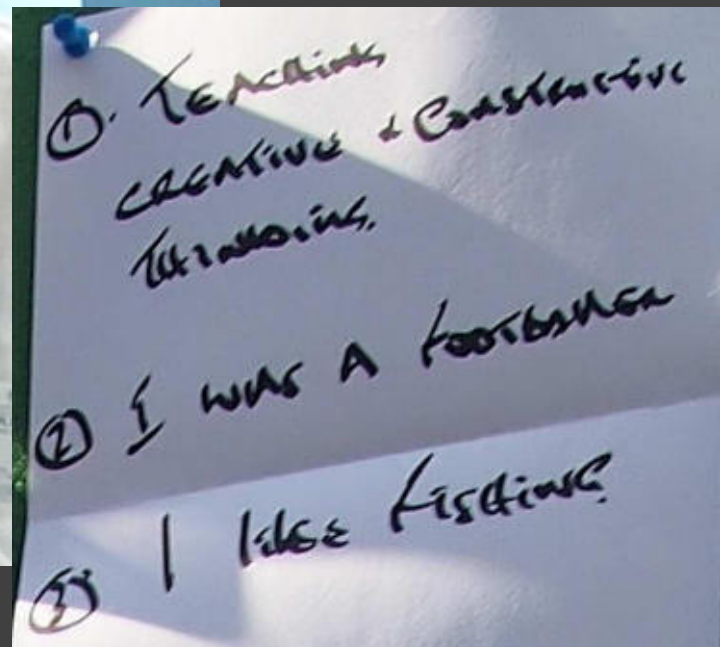 ①. TEACHING
CREATIVE + CONSTRUCTIVE
THINKING.
② I WAS A FOOTBALLER
③ I LIKE FISHING